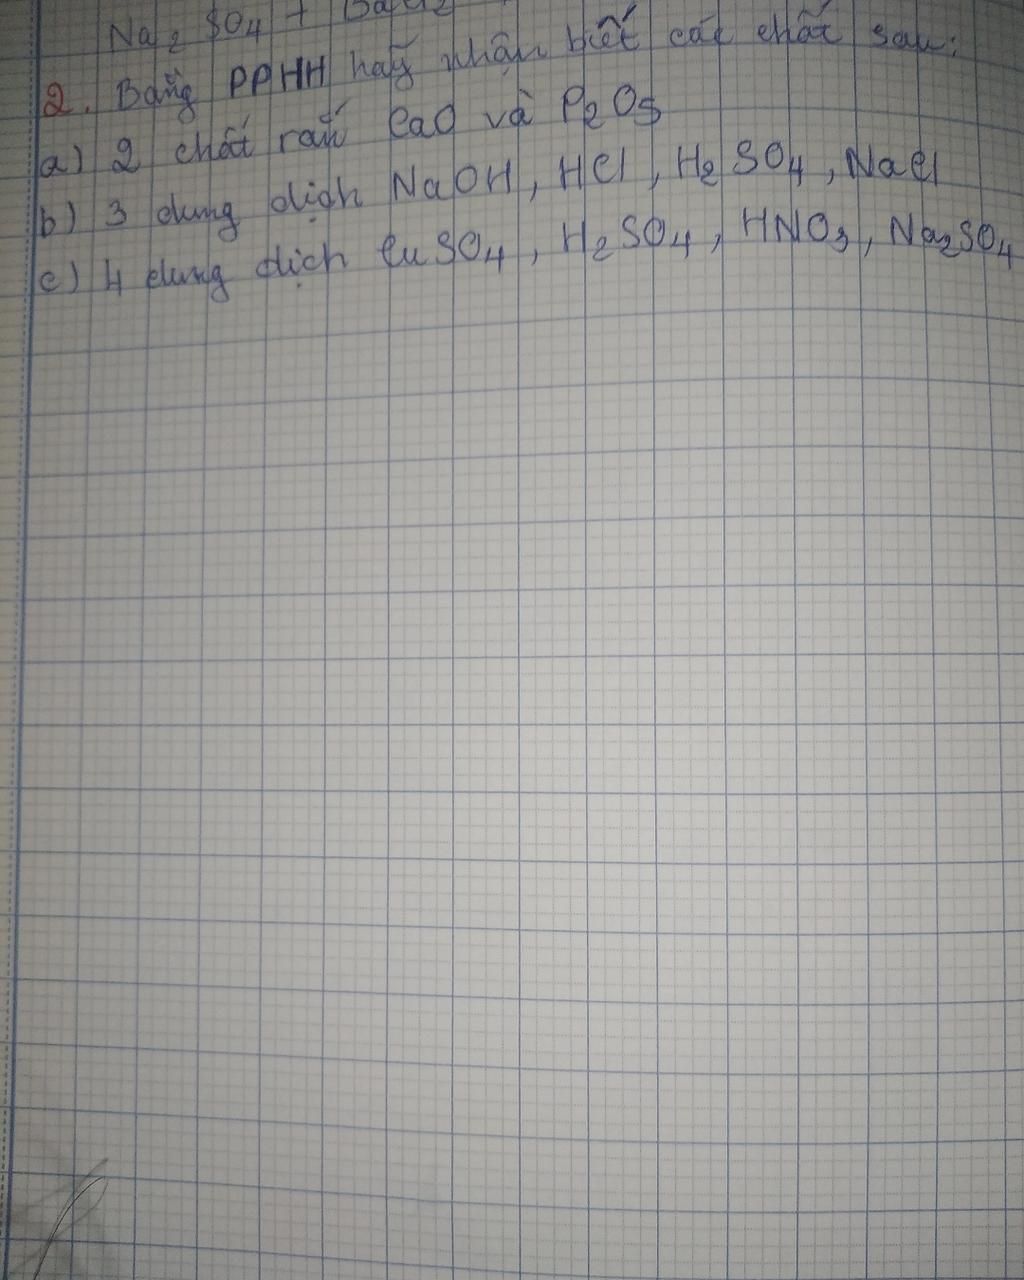 Na2SO4 + BaCl2
2. Bằng PPHH hãy nhận biết các chất sau:
a) 2 chất rắn CaO và P2O5
b) 3 dung dịch NaOH, HCl, H2SO4, NaCl
c) 4 dung dịch CuSO4, H2SO4, HNO3, Na2SO4